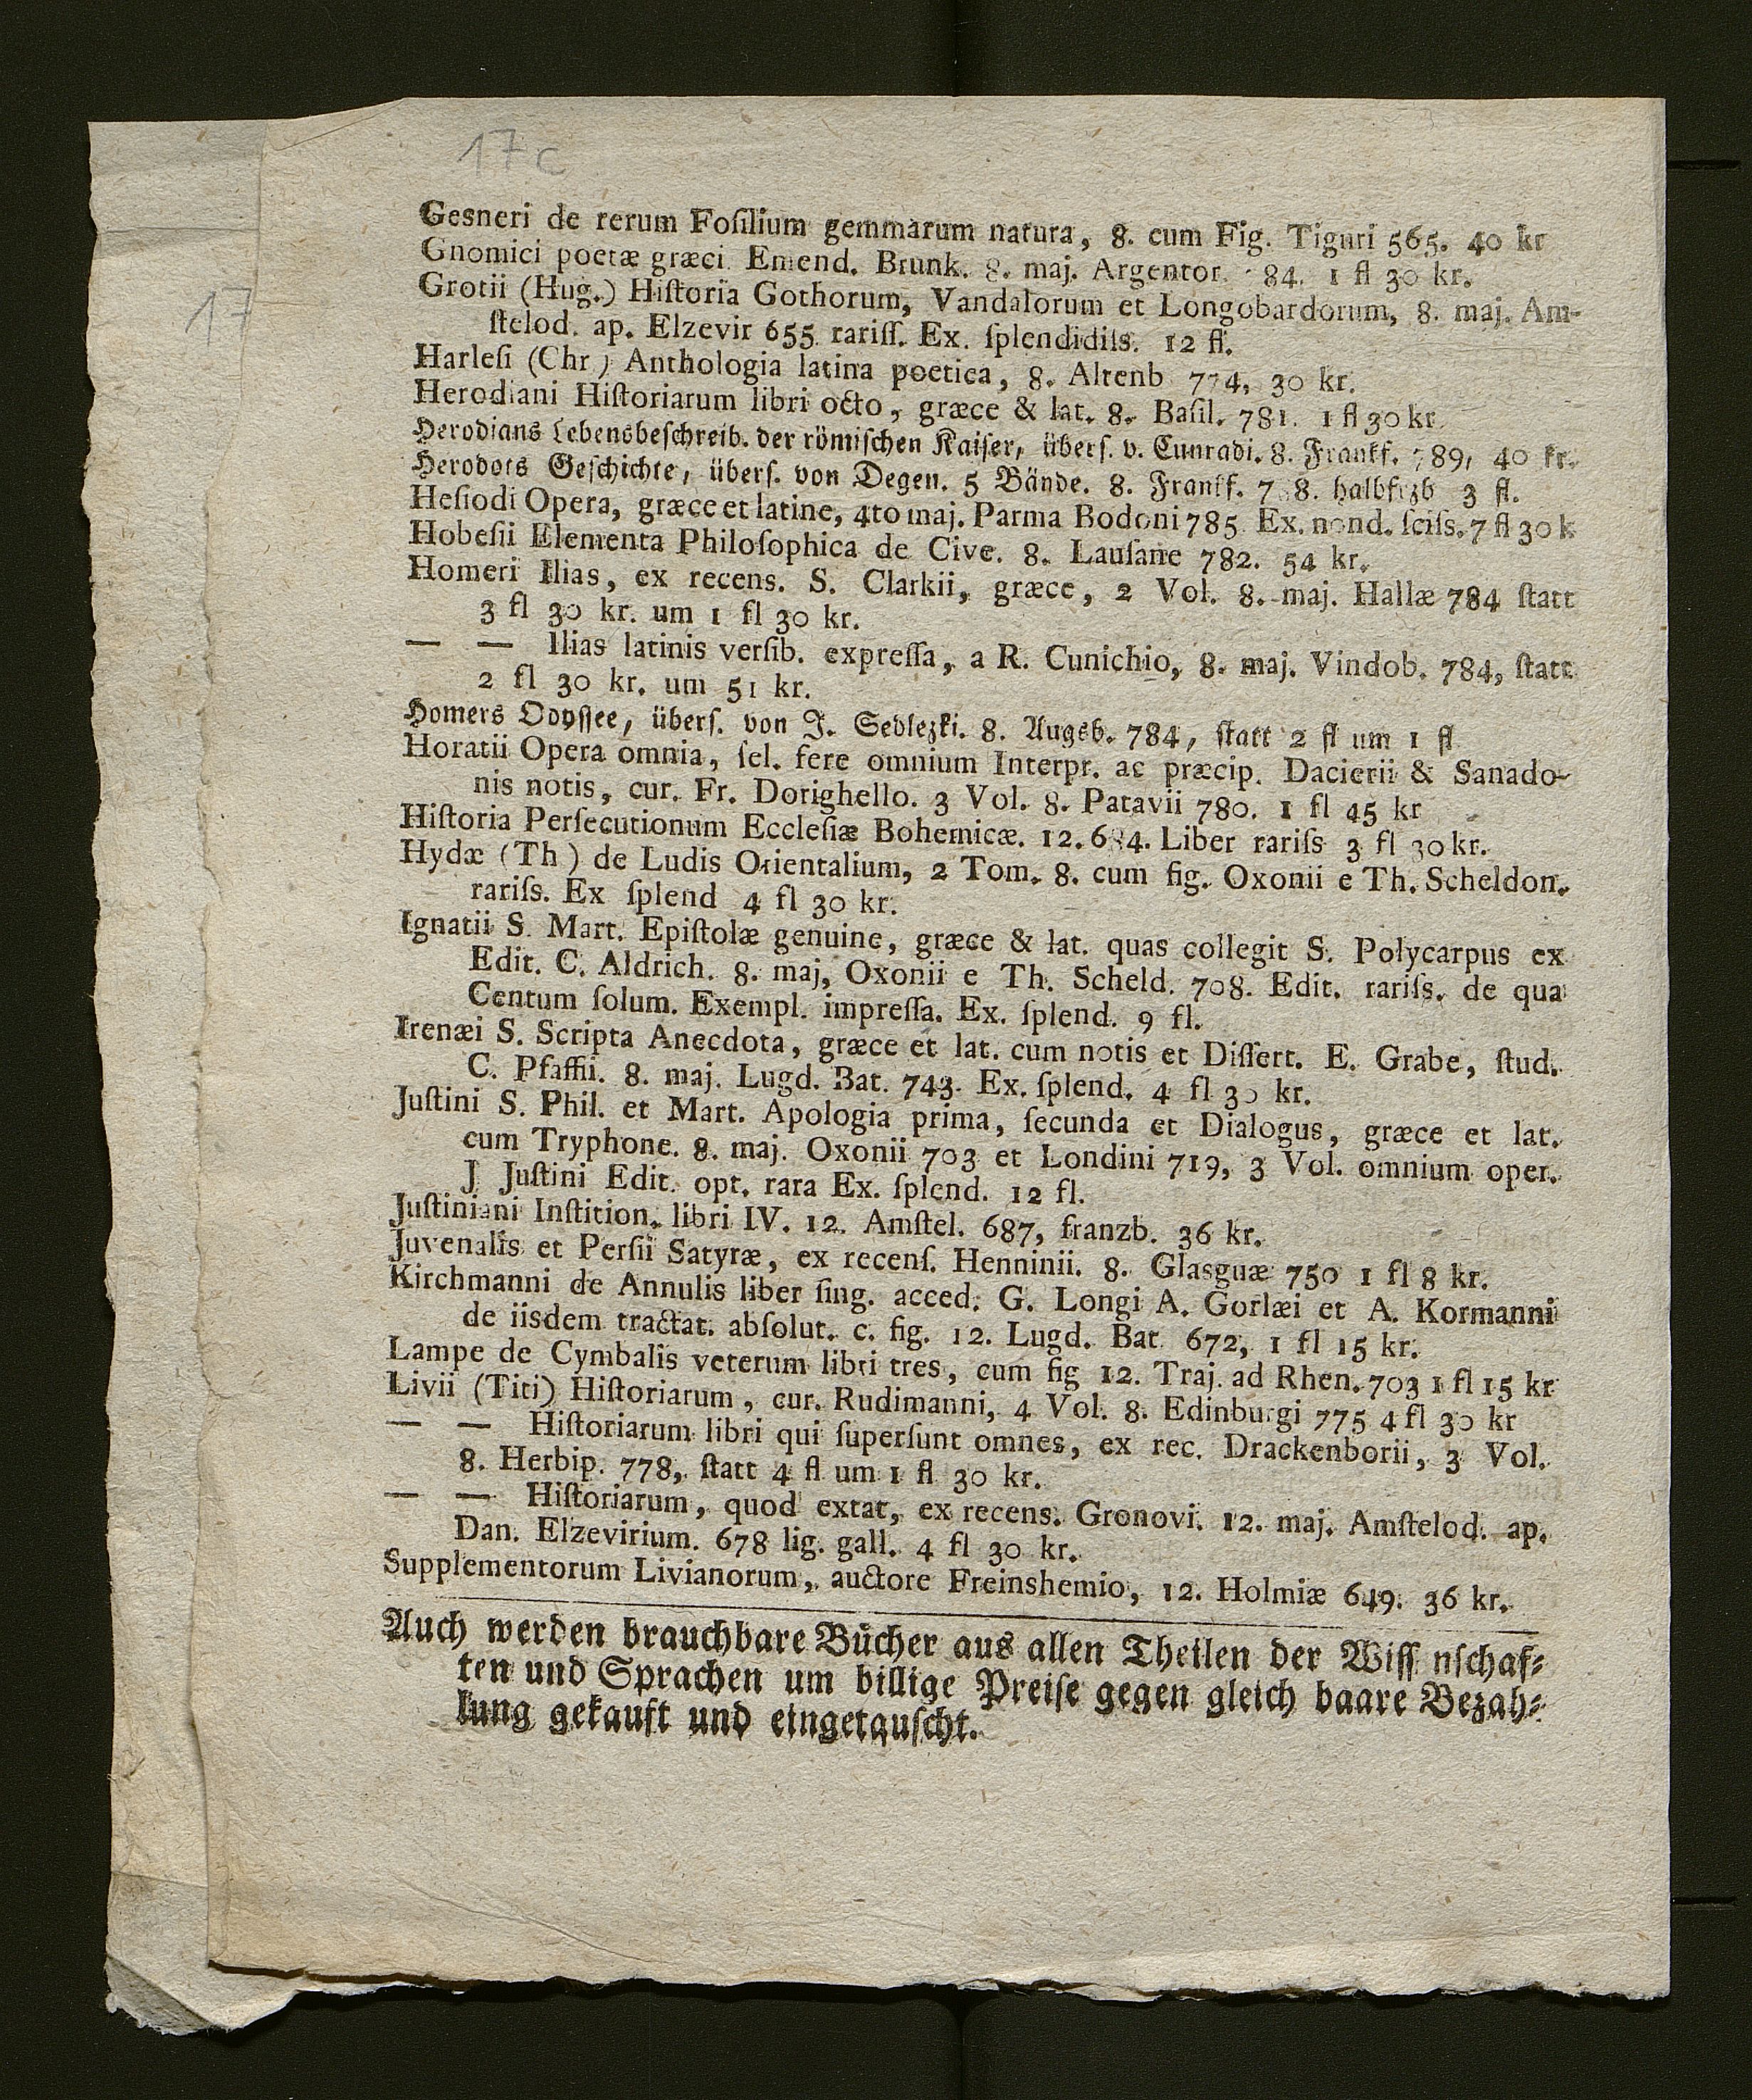 17 c
17
Gesneri de rerum Foſilium gemmarum natura, 8. cum Fig. Tiguri 565. 40 kr
Gnomici poetæ græci Emend. Brunk. 8. maj. Argentor. 84. 1 fl 30 kr.
Grotii (Hug.) Hiſtoria Gothorum, Vandalorum et Longobardorum, 8. maj. Am-
ſtelod. ap. Elzevir 655 rariſſ. Ex. ſplendidiſs. 12 fl.
Harleſi (Chr) Anthologia latina poetica, 8. Altenb 774, 30 kr.
Herodiani Hiſtoriarum libri octo, græce & lat. 8. Baſil. 781. 1 fl 30 kr.
Herodians Lebensbeſchreib. der römiſchen Kaiſer, überſ. v. Cunradi. 8. Frankf. 789, 40 kr.
Herodots Geſchichte, überſ. von Degen. 5 Bände. 8. Frankf. halbfrzb 3 fl.
Heſiodi Opera, græce et latine, 4to maj. Parma Bodoni 785 Ex. nond. ſciſs. 7 fl 30 k
Hobeſii Elementa Philoſophica de Cive. 8. Lauſane 782. 54 kr.
Homeri Ilias, ex recens. S. Clarkii, græce, 2 Vol. 8. maj. Hallæ 784 ſtatt
3 fl 30 kr. um 1 fl 30 kr.
— — Ilias latinis verſib. expreſſa, a R. Cunichio, 8. maj. Vindob. 784, ſtatt
2 fl 30 kr. um 51 kr.
Homers Odyſſee, überſ. von J. Sedlezki. 8. Augsb. 784, ſtatt 2 fl um 1 fl
Horatii Opera omnia, ſel. fere omnium Interpr. ac præcip. Dacierii & Sanado-
nis notis, cur. Fr. Dorighello. 3 Vol. 8. Patavii 780. 1 fl 45 kr
Hiſtoria Perſecutionum Eccleſiæ Bohemicæ. 12. Liber rariſs 3 fl 30 kr.
Hydæ (Th) de Ludis Orientalium, 2 Tom. 8. cum fig. Oxonii e Th. Scheldon.
rariſs. Ex ſplend 4 fl 30 kr.
Ignatii S. Mart. Epiſtolæ genuine, græce & lat. quas collegit S. Polycarpus ex
Edit. C. Aldrich. 8. maj, Oxonii e Th. Scheld. 708. Edit. rariſs. de qua
Centum ſolum. Exempl. impreſſa. Ex. ſplend. 9 fl.
Irenæi S. Scripta Anecdota, græce et lat. cum notis et Diſſert. E. Grabe, ſtud.
C. Pfaffii. 8. maj. Lugd. Bat. 743. Ex. ſplend. 4 fl 30 kr.
Juſtini S. Phil. et Mart. Apologia prima, ſecunda et Dialogus, græce et lat.
cum Tryphone. 8. maj. Oxonii 703 et Londini 719, 3 Vol. omnium oper.
J Juſtini Edit. opt. rara Ex. ſplend. 12 fl.
Juſtiniani Inſtition. libri IV. 12. Amſtel. 687, franzb. 36 kr.
Juvenalis et Perſii Satyræ, ex recenſ. Henninii. 8. Glasguæ 750 1 fl 8 kr.
Kirchmanni de Annulis liber ſing. acced. G. Longi A. Gorlæi et A. Kormanni
de iisdem tractat. abſolut. c. fig. 12. Lugd. Bat 672, 1 fl 15 kr.
Lampe de Cymbalis veterum libri tres, cum fig 12. Traj. ad Rhen. 703 1 fl 15 kr
Livii (Titi) Hiſtoriarum, cur. Rudimanni, 4 Vol. 8. Edinburgi 775 4 fl 30 kr
— — Hiſtoriarum libri qui ſuperſunt omnes, ex rec. Drackenborii, 3 Vol.
8. Herbip. 778, ſtatt 4 fl um 1 fl 30 kr.
— — Hiſtoriarum, quod extat, ex recens. Gronovi. 12. maj. Amſtelod. ap.
Dan. Elzevirium. 678 lig. gall. 4 fl 30 kr.
Supplementorum Livianorum, auctore Freinshemio, 12. Holmiæ 649. 36 kr.
Auch werden brauchbare Bücher aus allen Theilen der Wiſſ nſchaf⸗
ten und Sprachen um billige Preiſe gegen gleich baare Bezah⸗
lung gekauft und eingetauſcht.